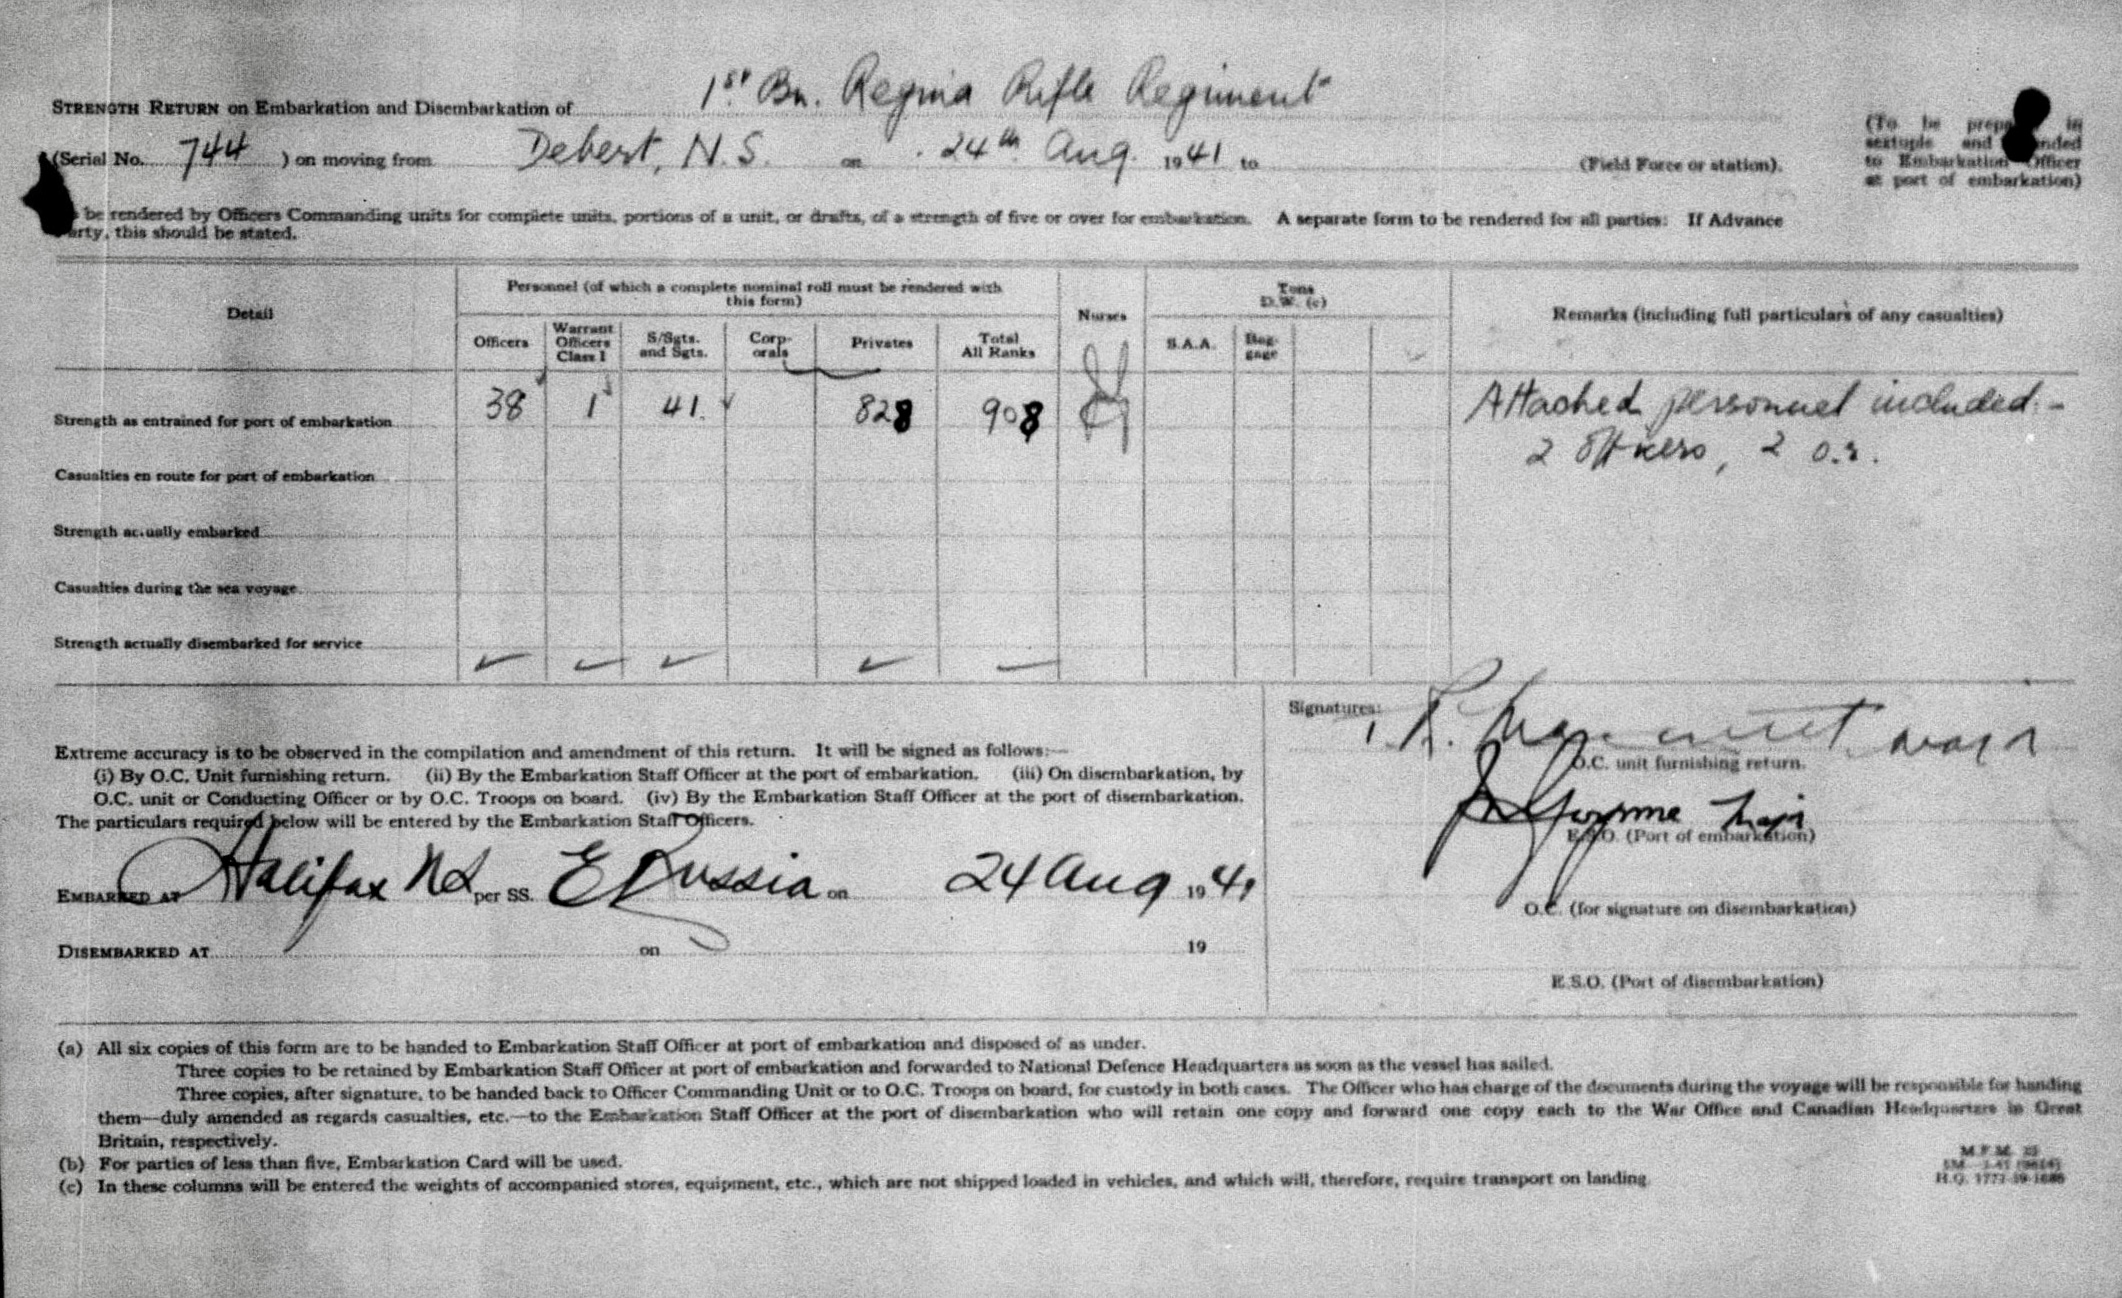 STRENGTH RETURN on Embarkation and Disembarkation of 1st Bn. Regina Rifle Regiment
(Serial No. 744 ) on moving from Debert, N.S. on 24th Aug. 1941 to (Field Force or station).
(To be prepa in
sextuple and nded
to Embarkation Officer
at port of embarkation)
be rendered by Officers Commanding units for complete units, portions of a unit, or drafts, of a strength of five or over for embarkation. A separate form to be rendered for all parties: If Advance
arty, this should be stated.
Detail
Personnel (of which a complete nominal roll must be rendered with
this form)
Officers
Warrant
Officers
Class I
S/Sgts.
and Sgts.
Corp-
orals
Privates
Total
All Ranks
Nurses
Tons
D.W. (c)
S.A.A.
Bag-
gage
Remarks (including full particulars of any casualties)
Strength as entrained for port of embarkation 38 1 41 828 908
Attached personnel included:-
2 Officers, 2 o.r.
Casualties en route for port of embarkation
Strength actually embarked
Casualties during the sea voyage
Strength actually disembarked for service
Extreme accuracy is to be observed in the compilation and amendment of this return. It will be signed as follows:—
(i) By O.C. Unit furnishing return. (ii) By the Embarkation Staff Officer at the port of embarkation. (iii) On disembarkation, by
O.C. unit or Conducting Officer or by O.C. Troops on board. (iv) By the Embarkation Staff Officer at the port of disembarkation.
The particulars required below will be entered by the Embarkation Staff Officers.
EMBARKED AT Halifax NS per SS. E Russia on 24 Aug 1941
DISEMBARKED AT on 19
Signatures:
O.C. unit furnishing return.
Major
E.S.O. (Port of embarkation)
O.C. (for signature on disembarkation)
E.S.O. (Port of disembarkation)
(a) All six copies of this form are to be handed to Embarkation Staff Officer at port of embarkation and disposed of as under.
Three copies to be retained by Embarkation Staff Officer at port of embarkation and forwarded to National Defence Headquarters as soon as the vessel has sailed.
Three copies, after signature, to be handed back to Officer Commanding Unit or to O.C. Troops on board, for custody in both cases. The Officer who has charge of the documents during the voyage will be responsible for handing
them—duly amended as regards casualties, etc.—to the Embarkation Staff Officer at the port of disembarkation who will retain one copy and forward one copy each to the War Office and Canadian Headquarters in Great
Britain, respectively.
(b) For parties of less than five, Embarkation Card will be used.
(c) In these columns will be entered the weights of accompanied stores, equipment, etc., which are not shipped loaded in vehicles, and which will, therefore, require transport on landing.
M.F.M.
H.Q.